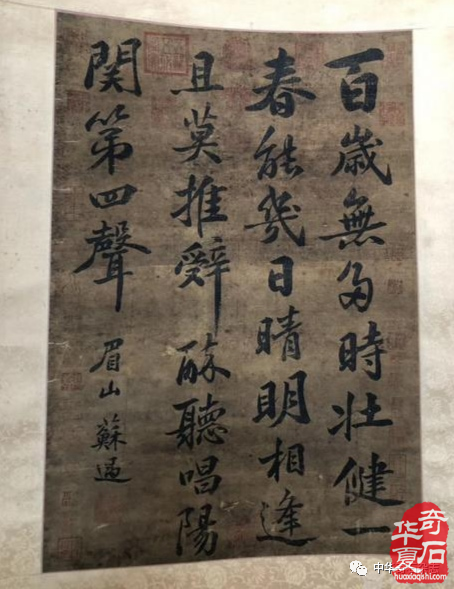 百歳無多時壮健一
春能幾日晴明相逢
且莫推辤酔聽唱陽
関第四聲
眉山 蘇過
中华
华夏
奇石
huaxiaqishi.com